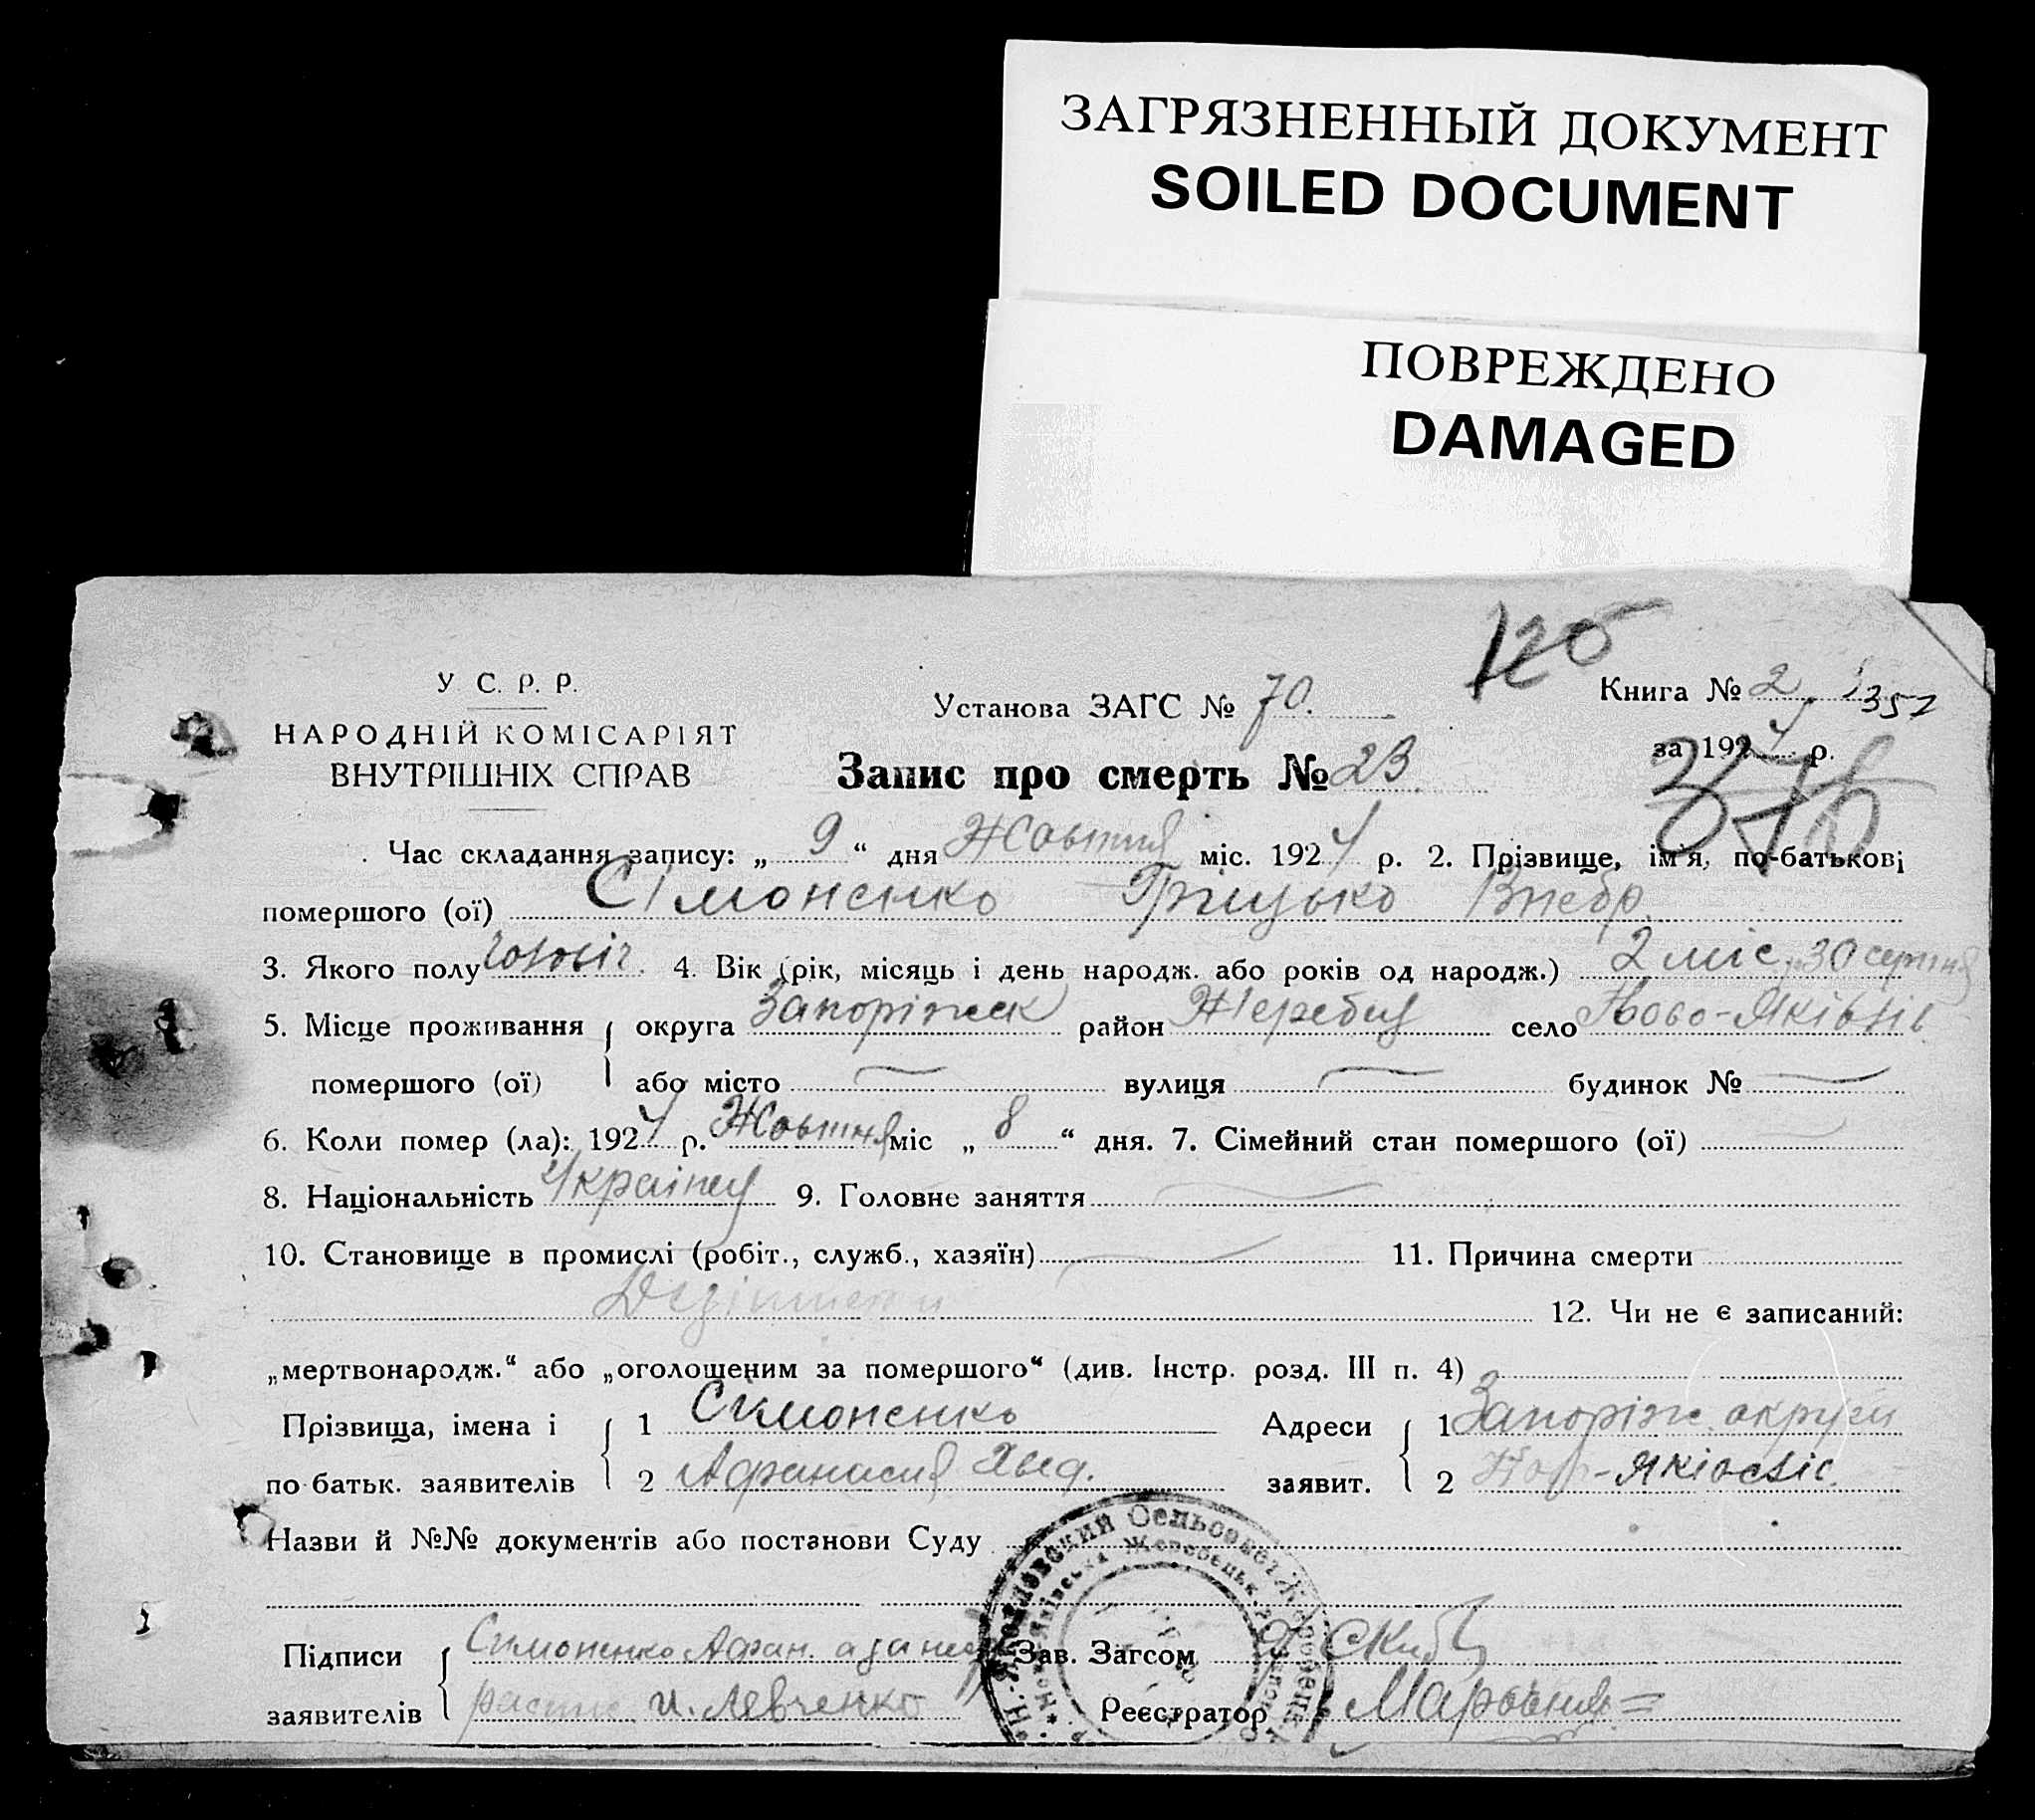 ЗАГРЯЗНЕННЫЙ ДОКУМЕНТ
SOILED DOCUMENT
ПОВРЕЖДЕНО
DAMAGED
120
У С. Р. Р.
НАРОДНІЙ КОМІСАРІЯТ
ВНУТРІШНІХ СПРАВ
Установа ЗАГС № 70.
Книга № 2 351
за 1924 р.
376
Запис про смерть № 23
Час складання запису: „ 9 “ дня Жовтня міс. 1924 р. 2. Прізвище, ім'я, по-батькові
помершого (ої) Сімоненко Грицько
3. Якого полу чоловіч. 4. Вік (рік, місяць і день народж. або років од народж.) 2 міс. 30 серпня
5. Місце проживання округа Запоріжск район Жеребця село Ново-Яківлів
помершого (ої) або місто — вулиця — будинок № —
6. Коли помер (ла): 1924 р. Жовтня міс „ 8 “ дня. 7. Сімейний стан помершого (ої)
8. Національність 9. Головне заняття
10. Становище в промислі (робіт., служб., хазяїн) 11. Причина смерти
12. Чи не є записаний:
„мертвонародж.“ або „оголошеним за помершого“ (див. Інстр. розд. III п. 4)
Прізвища, імена і 1 Симоненко Адреси 1 Запоріж. округи
по-батьк. заявителів 2 Афанасия заявит. 2
Назви й №№ документів або постанови Суду
Підписи Симоненко Афан. Зав. Загсом Скиба
заявителів И. Левченко Реєстратор